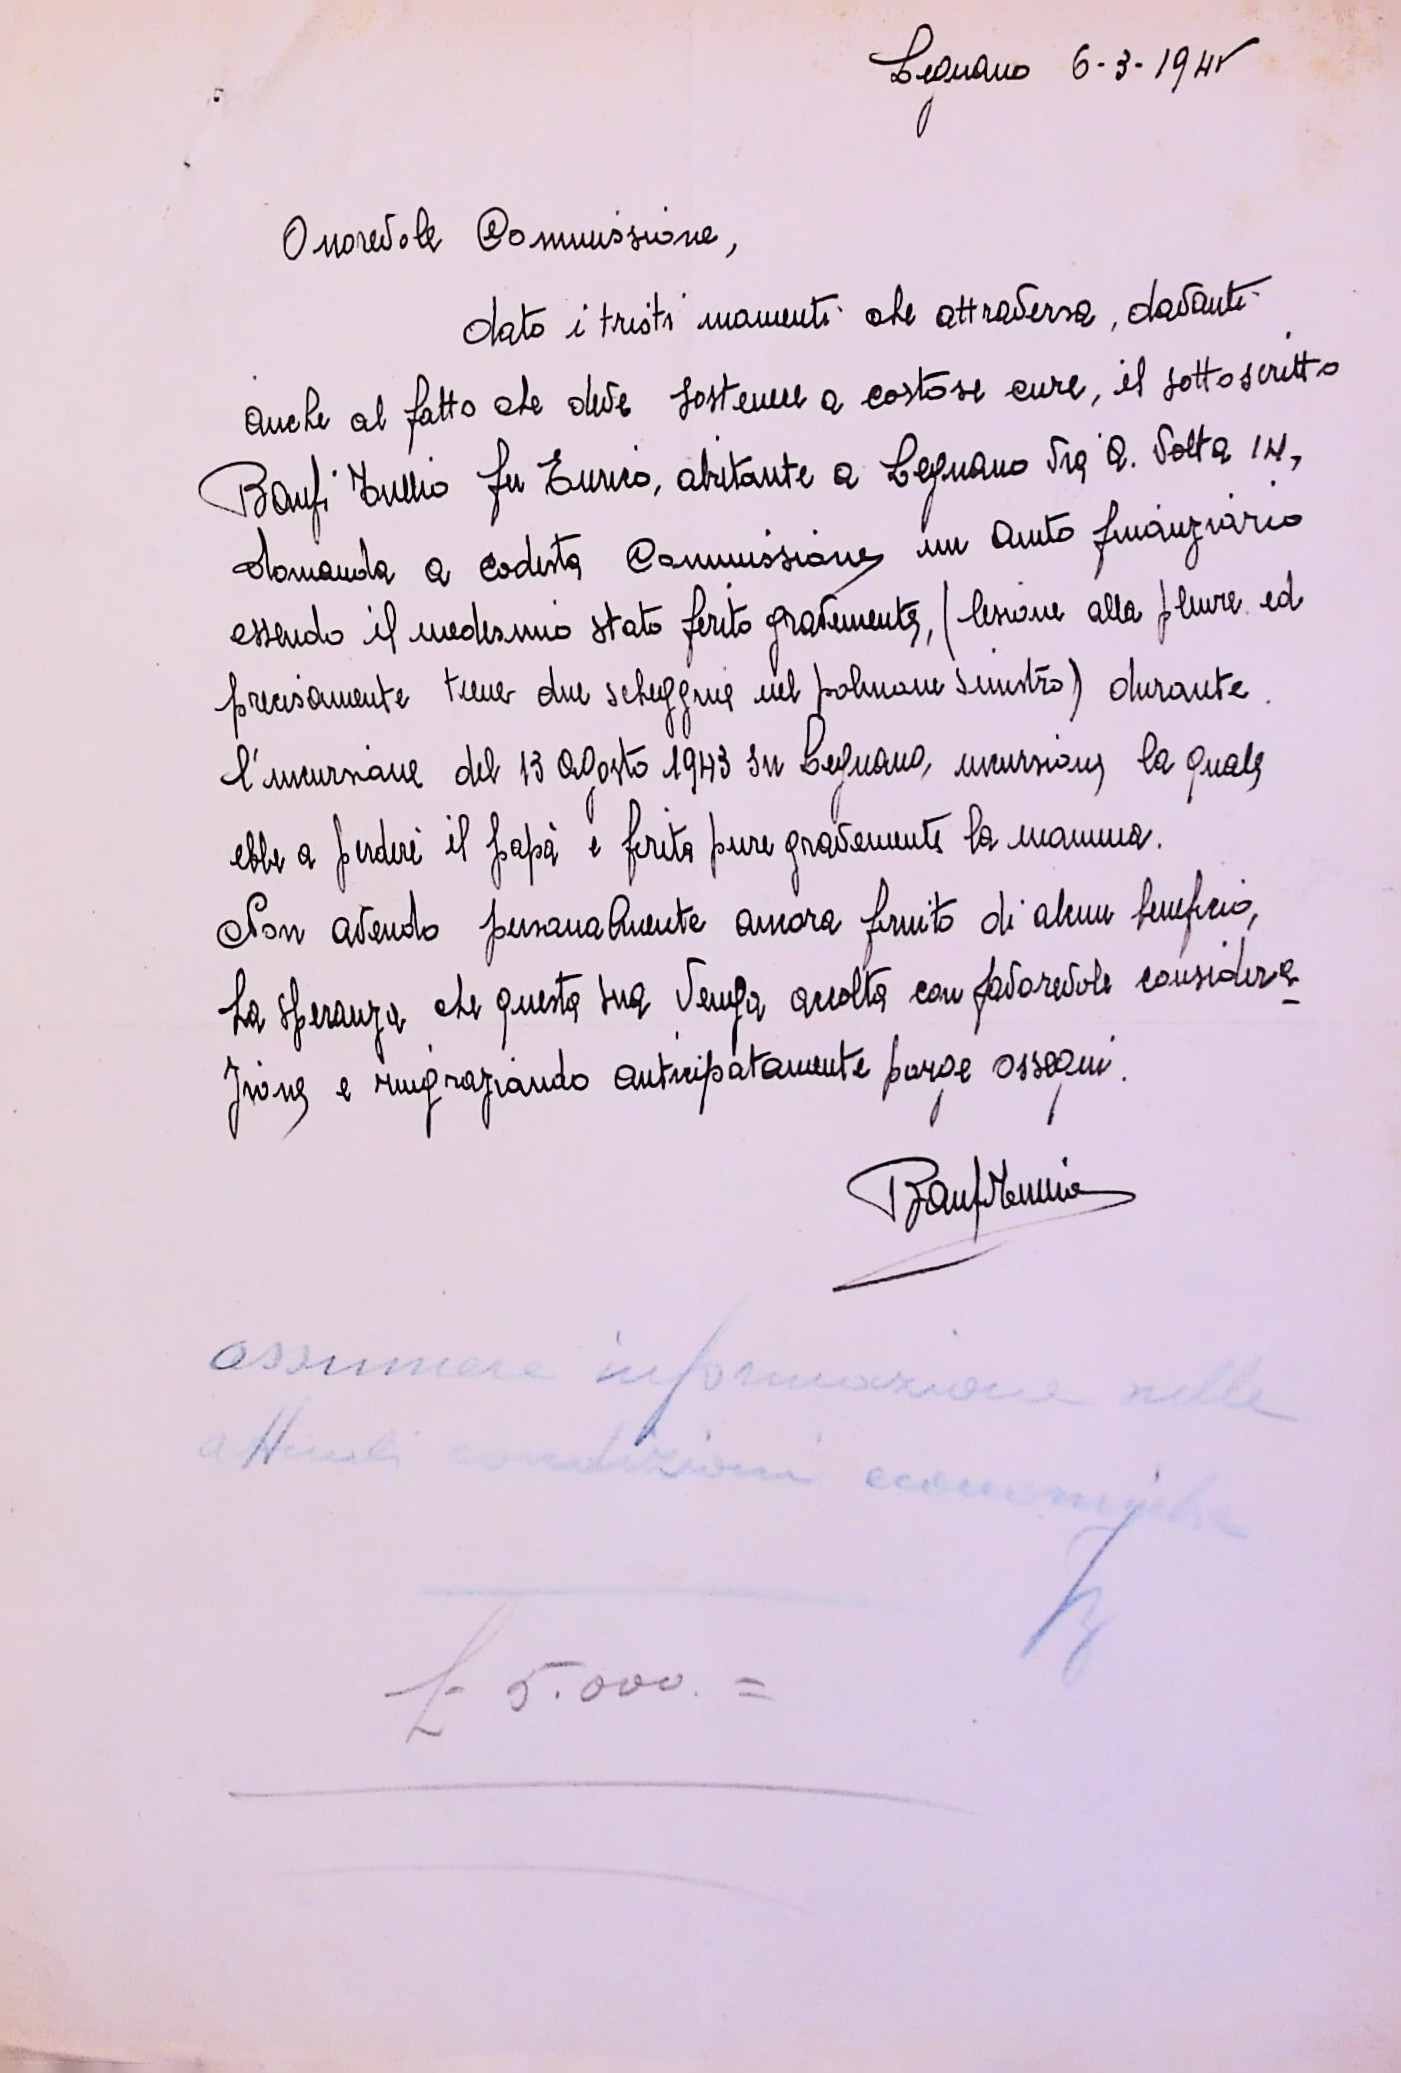 Legnano 6-3-1945
Onorevole Commissione,
dato i tristi momenti che attraversa, davanti
anche al fatto che deve sostenere a costose cure, il sottoscritto
Banfi Tullio fu Enrico, abitante a Legnano Via A. Volta 14,
domanda a codesta Commissione un aiuto finanziario
essendo il medesimo stato ferito gravemente, (lesione alla pleure ed
precisamente tiene due scheggnie nel polmone sinistro) durante
l'incursione del 13 Agosto 1943 su Legnano, incursione la quale
ebbe a perdere il papà e ferita pure gravemente la mamma.
Non avendo personalmente ancora fruito di alcun beneficio,
la speranza che questa sua venga accolta con favorevole considera
zione e ringraziando anticipatamente porge ossequi.
Banfi Tullio
assumere informazione sulle
attuali condizioni economiche
£ 5.000. =